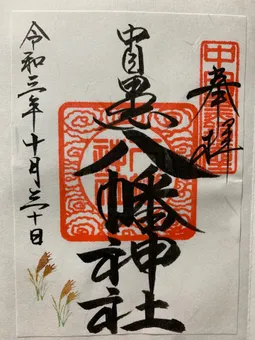 奉拝
中目黒
八幡神社
令和三年十月三十日